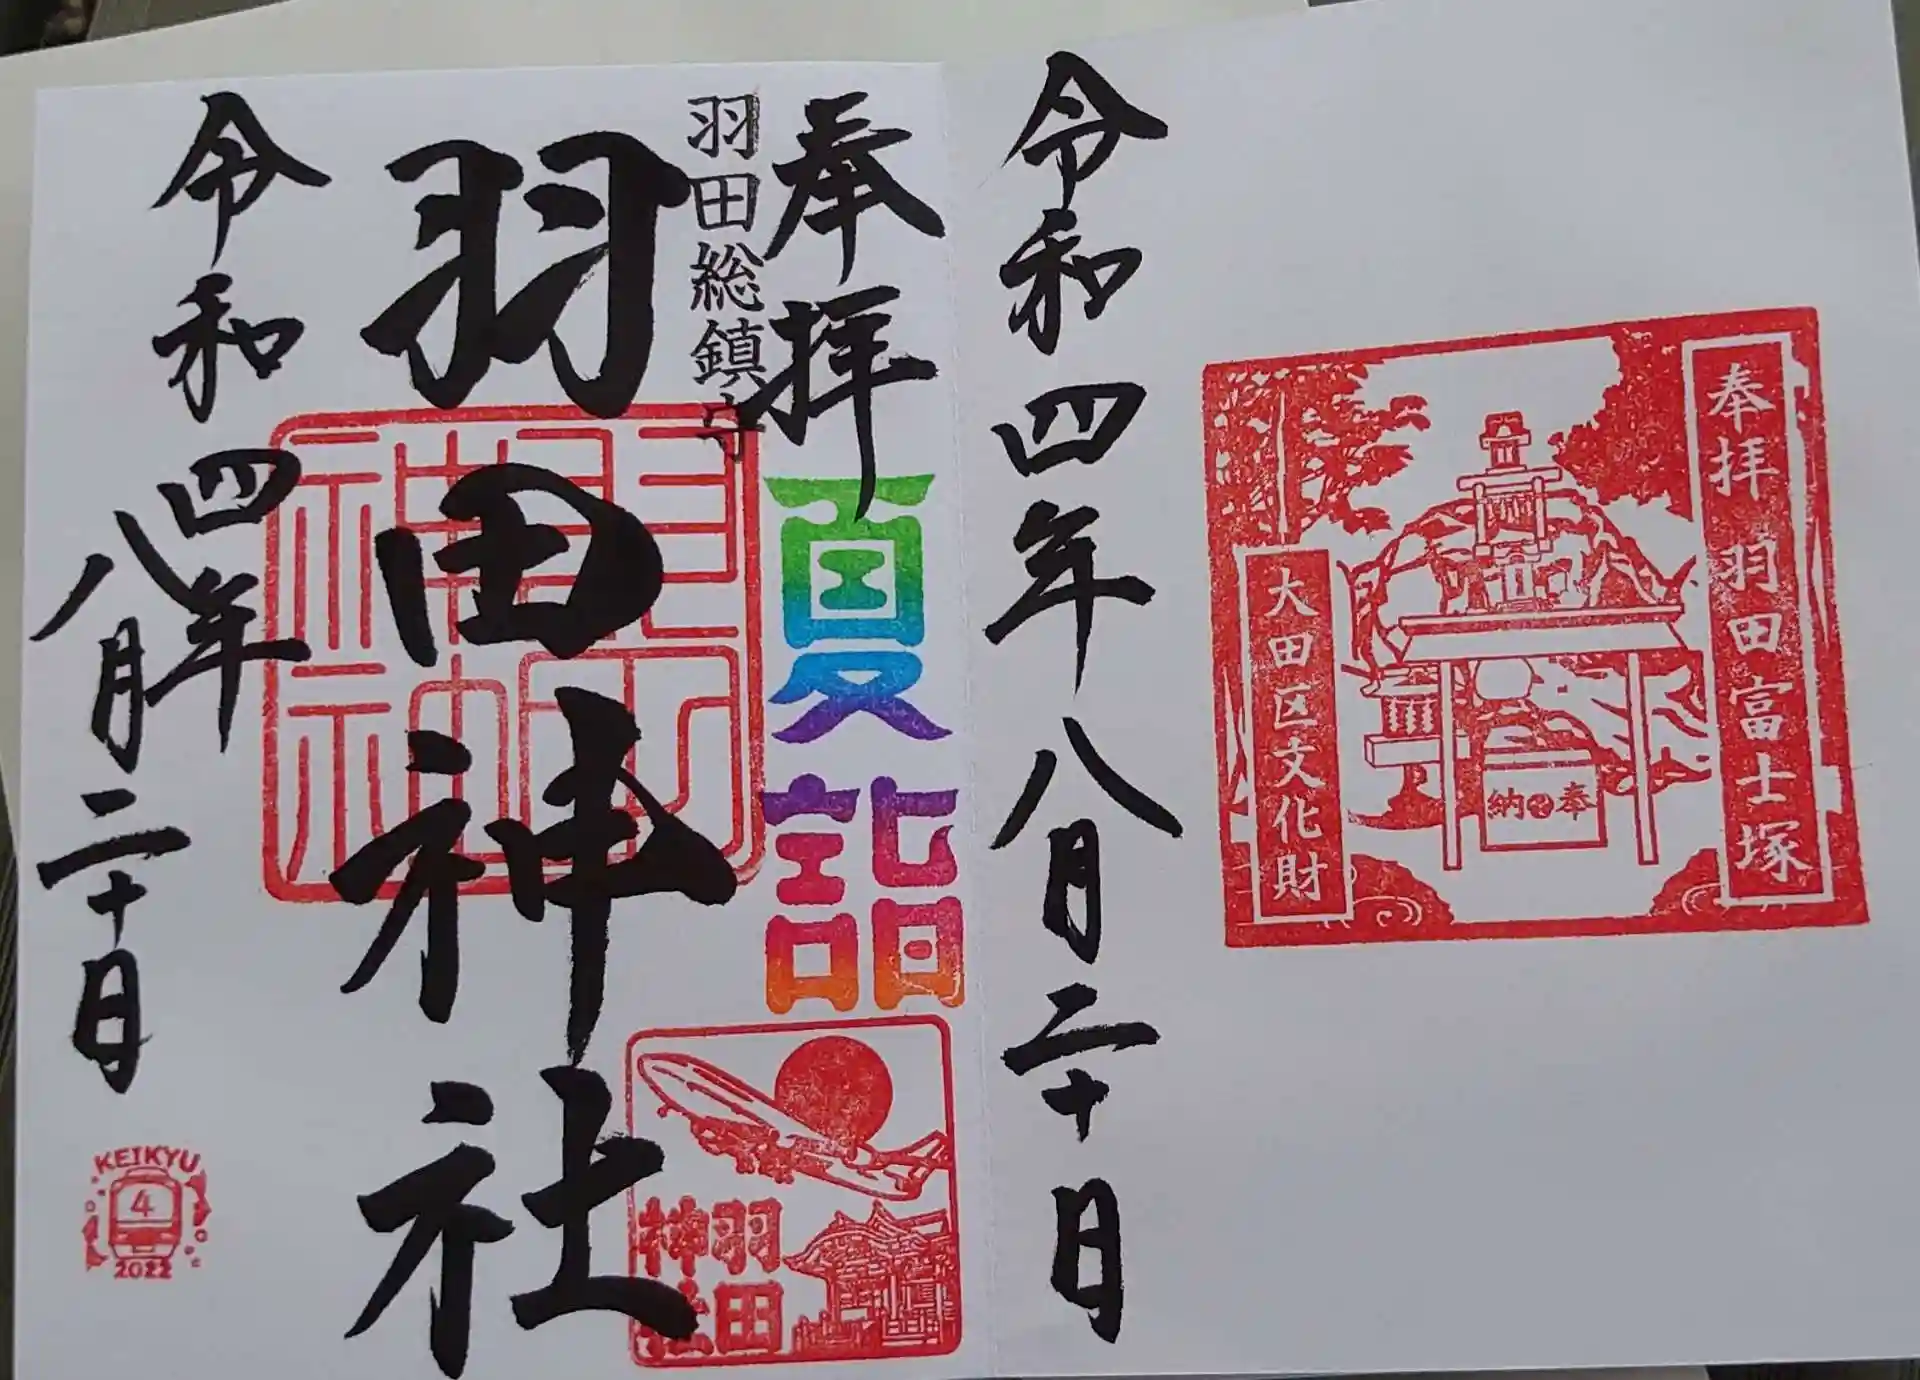 奉拝 羽田富士塚
大田区文化財
奉納
令和四年八月二十日
奉拝
夏詣
羽田総鎮守
羽田神社
羽田
神社
羽田
神社
令和四年
八月二十日
KEIKYU
4
2022